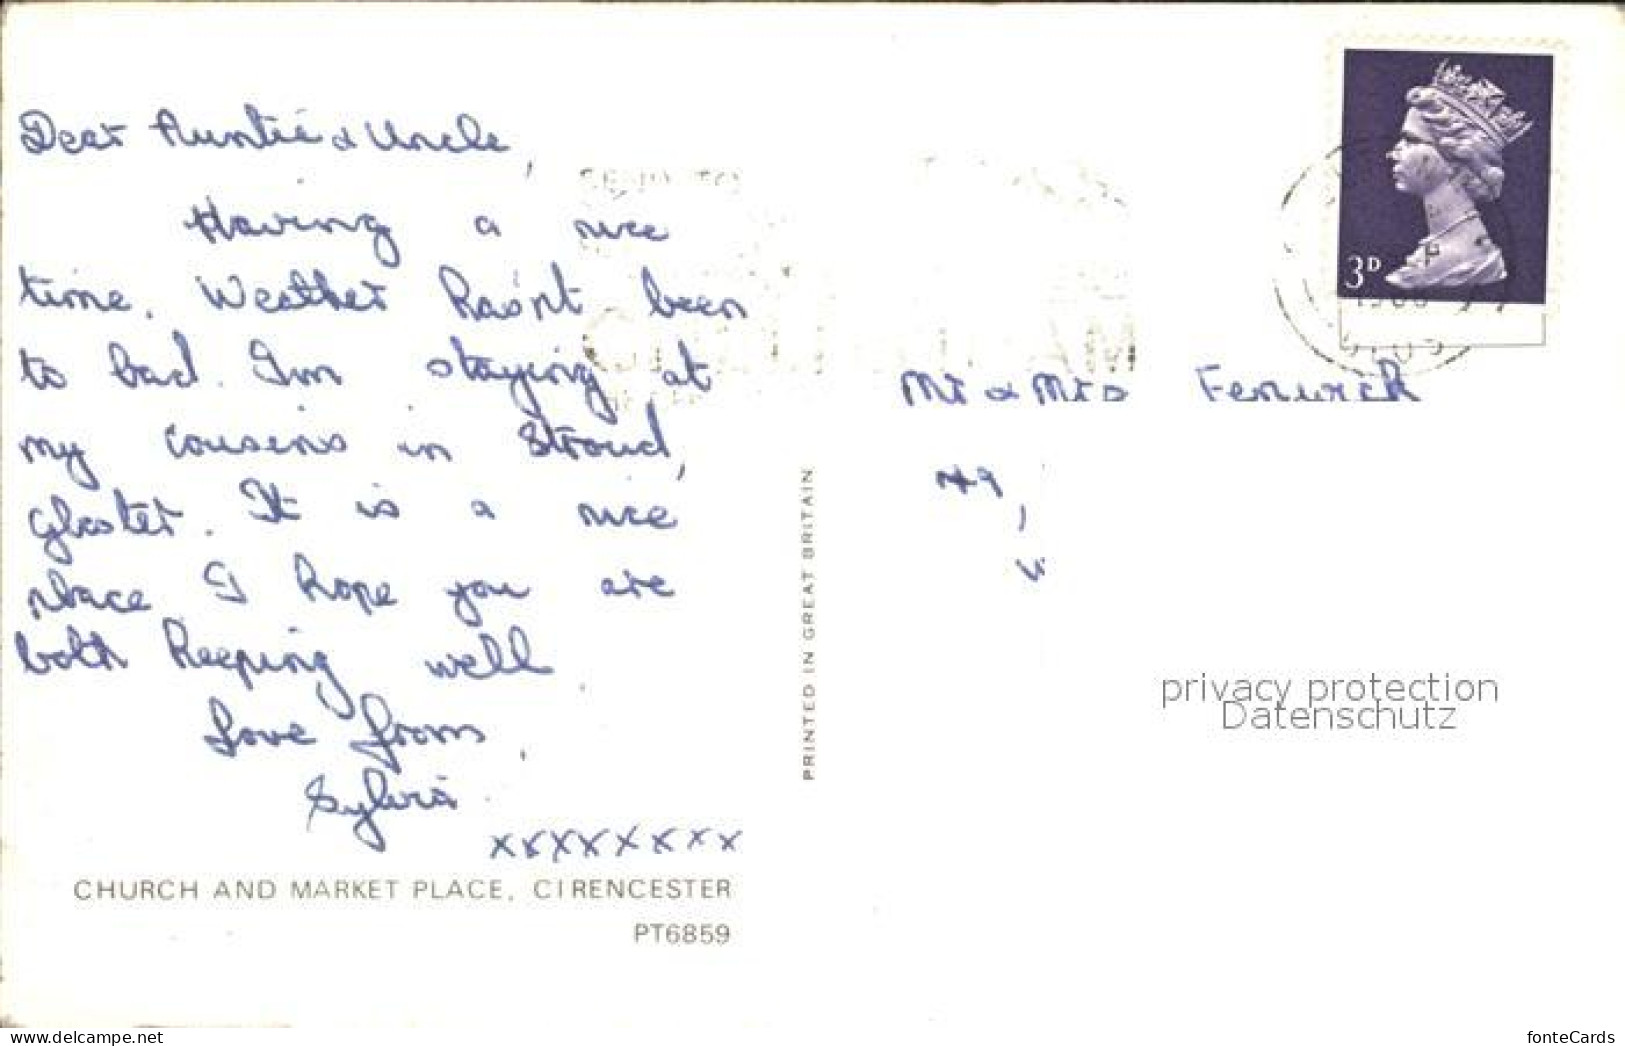 Dear Auntie & Uncle,
Having a nice
time. Weather hasn't been
to bad. Im staying at
my cousins in Stroud,
Gloster. It is a nice
place I hope you are
both keeping well.
Love from,
Sylvia.
xxxxxxxx
CHURCH AND MARKET PLACE, CIRENCESTER
PT6859
PRINTED IN GREAT BRITAIN
3D
GLOS
Mr & Mrs Fenwick
49
privacy protection
Datenschutz
https://www.delcampe.net
fonteCards